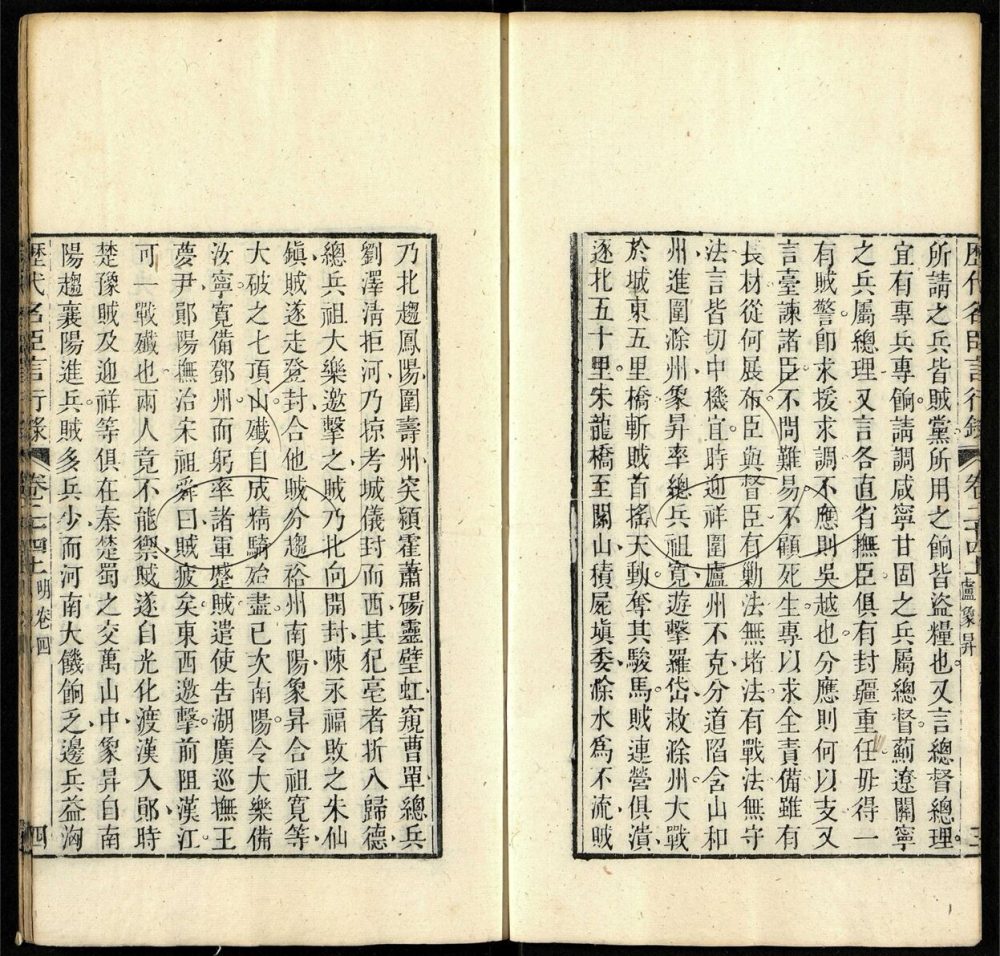 歷代名臣言行錄 卷二十四上 盧象昇 三
所請之兵皆賊黨所用之餉皆盜糧也又言總督總理
宜有專兵專餉請調咸寧甘固之兵屬總督薊遼關寧
之兵屬總理又言各直省撫臣俱有封疆重任毋得一
有賊警卽求援求調不應則吳越也分應則何以支又
言臺諫諸臣不問難易不顧死生專以求全責備雖有
長材從何展布臣與督臣有勦法無堵法有戰法無守
法言皆切中機宜時迎祥圍廬州不克分道陷含山和
州進圍滁州象昇率總兵祖寬遊擊羅岱救滁州大戰
於城東五里橋斬賊首搖天動奪其駿馬賊連營俱潰
逐北五十里朱龍橋至關山積屍塡委滁水爲不流賊
乃北趨鳳陽圍壽州突潁霍蕭碭靈璧虹窺曹單總兵
劉澤淸拒河乃掠考城儀封而西其犯亳者折入歸德
總兵祖大樂邀擊之賊乃北向開封陳永福敗之朱仙
鎭賊遂走登封合他賊分趨裕州南陽象昇合祖寬等
大破之七頂山殲自成精騎殆盡已次南陽令大樂備
汝寧寬備鄧州而躬率諸軍蹙賊遣使告湖廣巡撫王
夢尹鄖陽撫治宋祖舜曰賊疲矣東西邀擊前阻漢江
可一戰殲也兩人竟不能禦賊遂自光化渡漢入鄖時
楚豫賊及迎祥等俱在秦楚蜀之交萬山中象昇自南
陽趨襄陽進兵賊多兵少而河南大饑餉乏邊兵益洶
歷代名臣言行錄 卷二十四上 明卷四 四